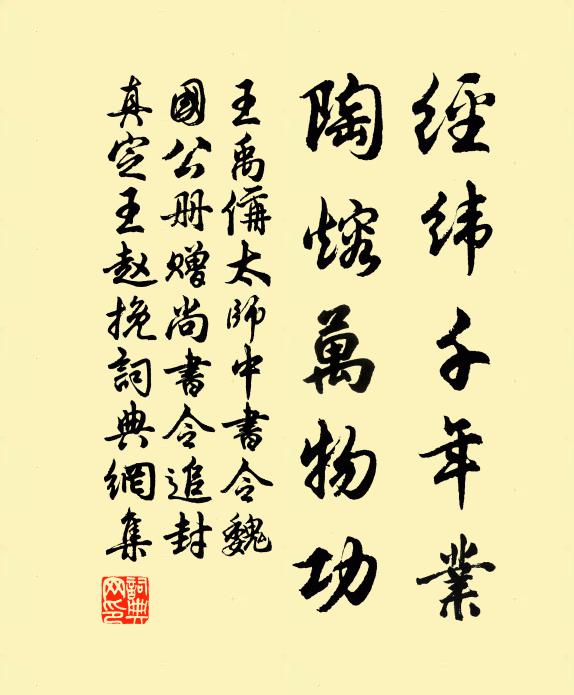 經緯千年業
陶熔萬物功
王禹偁太師中書令魏
國公册贈尚書令追封
真定王赵挽詞典網集
詞典
网印